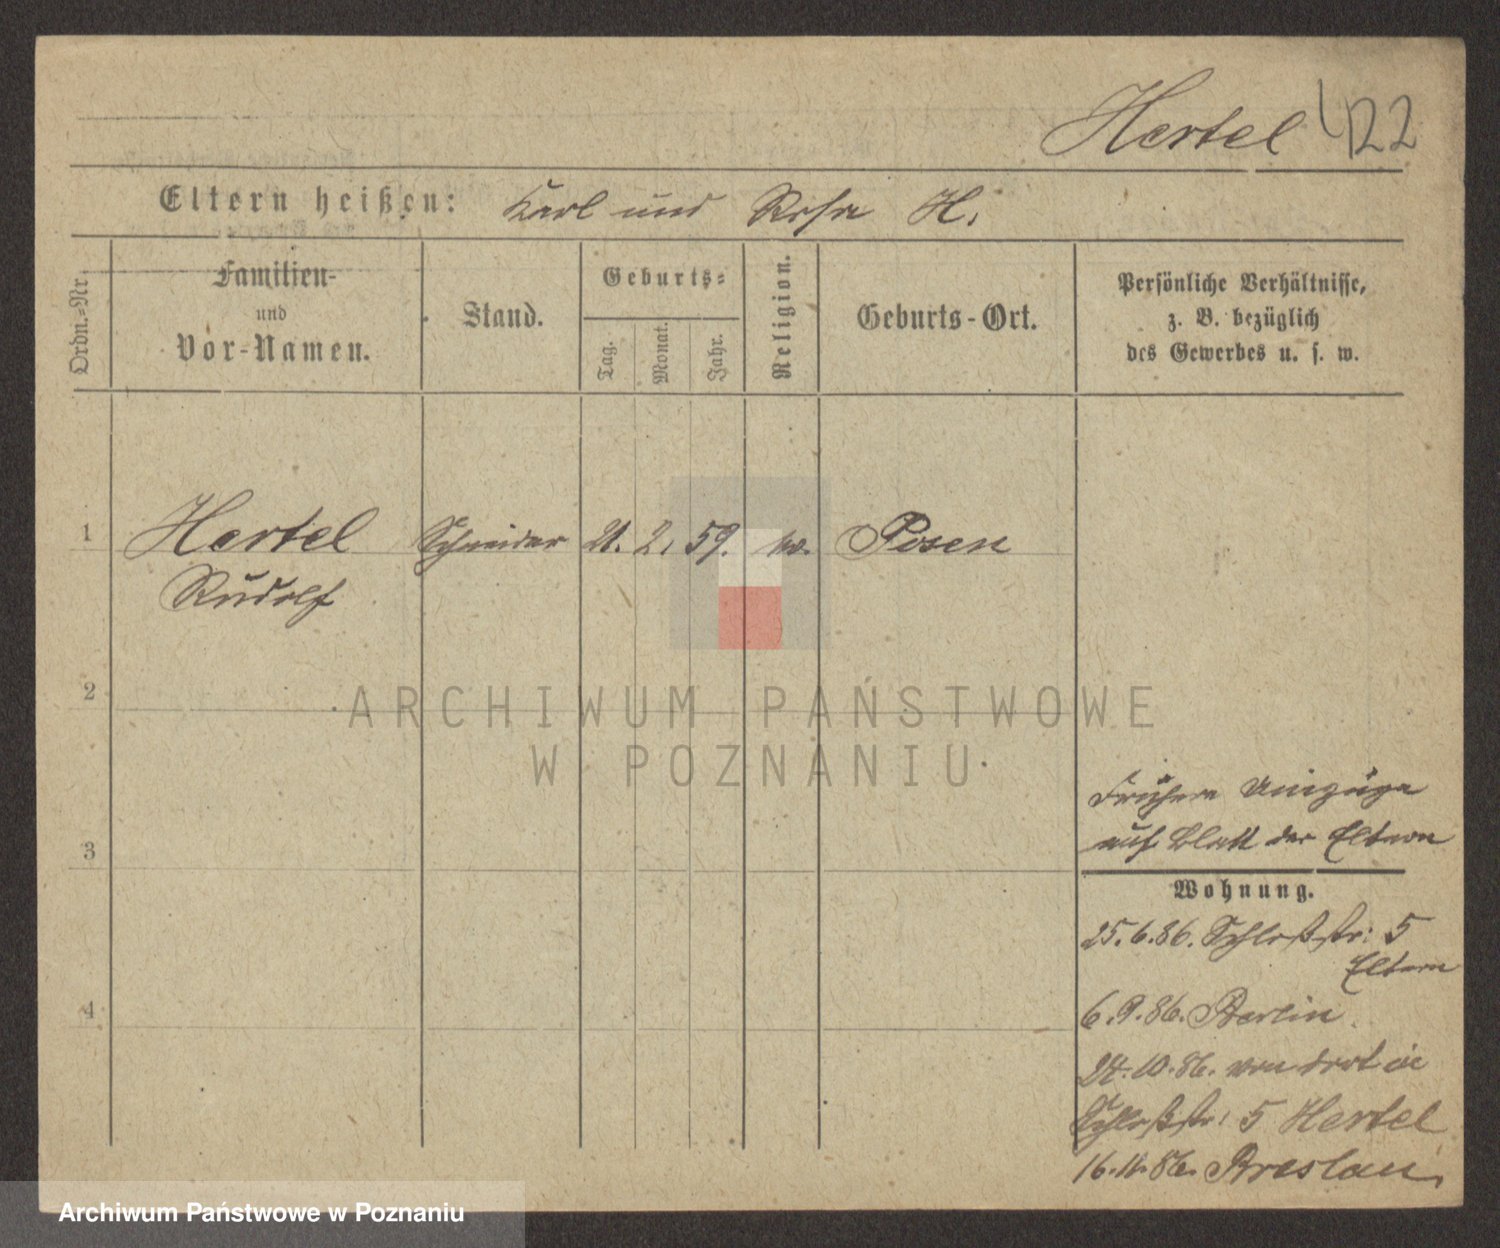 Hertel 422
Eltern heißen: Karl und Rosa H.
Ordn.-Nr.
Familien-
und
Vor-Namen.
Stand.
Geburts-
Tag.
Monat.
Jahr.
Religion.
Geburts-Ort.
Persönliche Verhältnisse,
z. B. bezüglich
des Gewerbes u. s. w.
1 Hertel Schneider 21. 2. 59. Posen
Rudolf
2
ARCHIWUM PAŃSTWOWE
W POZNANIU
Frühere Umzüge
3 auf Blatt der Eltern
Wohnung.
25.6.86. Schloßstr: 5
Eltern
4 6.9.86. Berlin
24.10.86. von dort in
Schloßstr: 5 Hertel
16.11.86. Breslau.
Archiwum Państwowe w Poznaniu